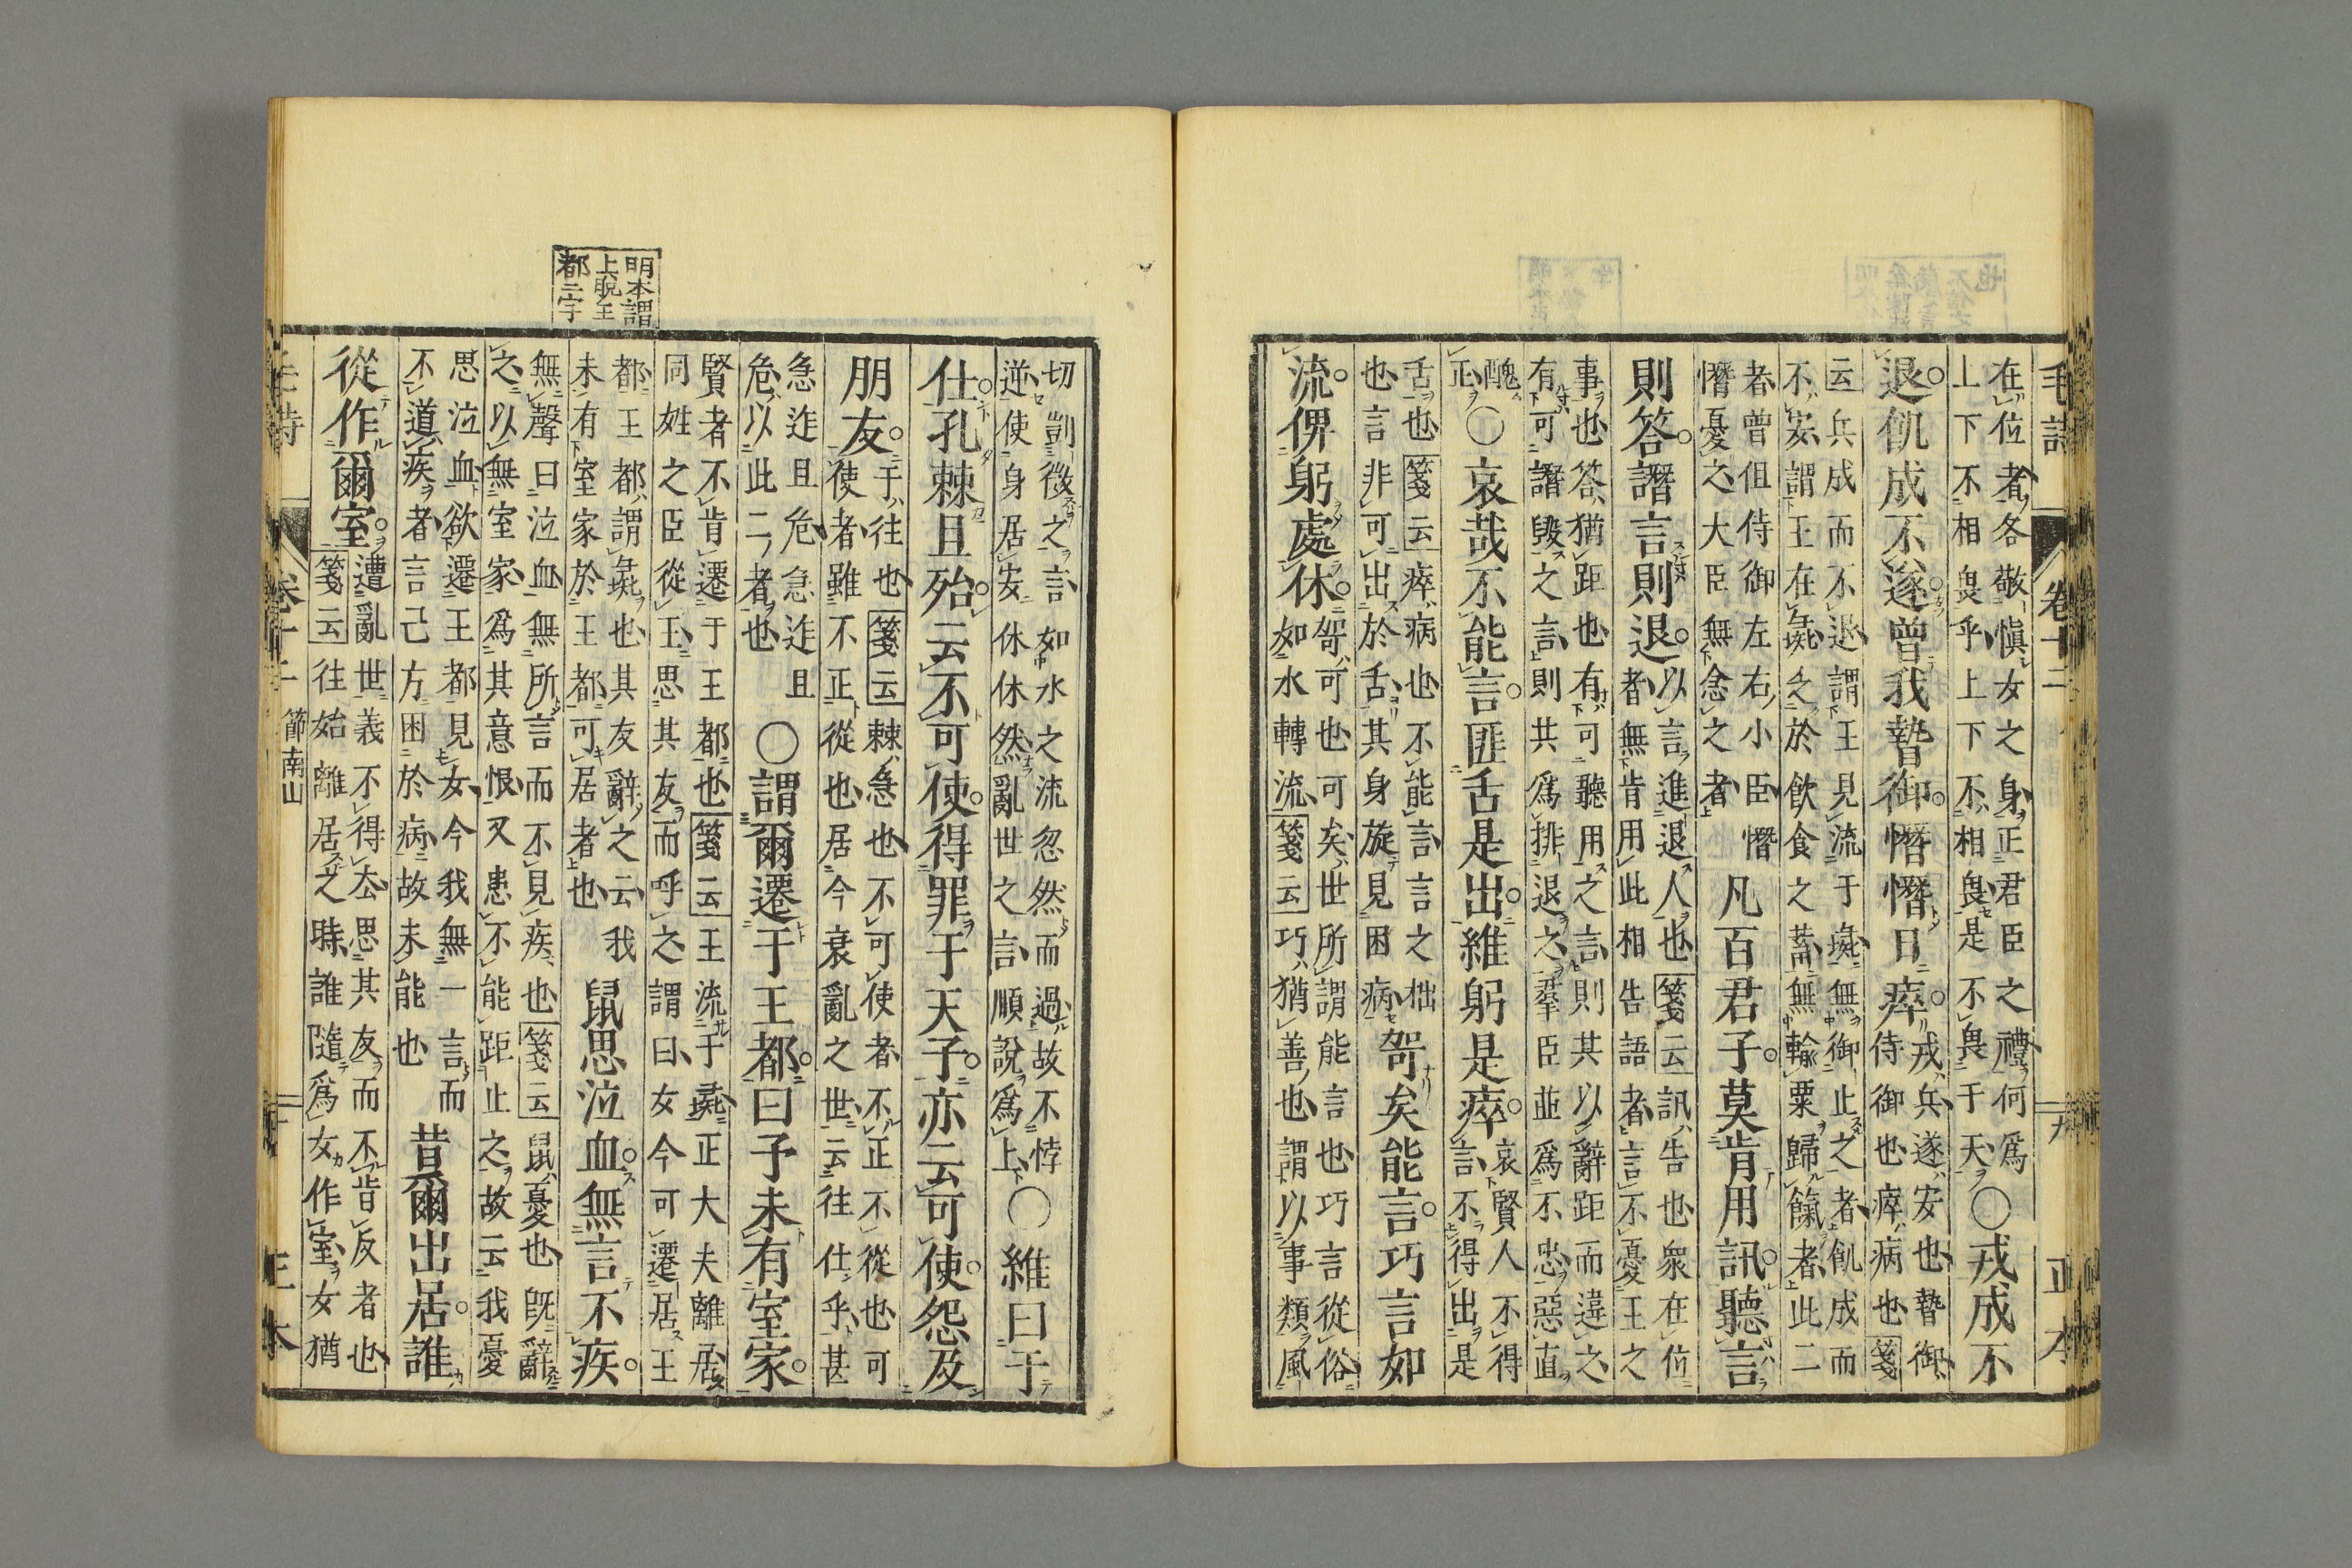 毛詩 卷十二 九 正本
在位者各敬愼女之身正君臣之禮何爲
上下不相畏乎上下不相畏是不畏于天
○戎成不
退飢成不遂曾我暬御憯憯日瘁
戎兵遂安也暬御
侍御也瘁病也箋
云兵成而不退謂王見流于彘無御止之者飢成而
不安謂王在彘乏於飲食之蓄無輸粟歸餼者此二
者曾但侍御左右小臣憯
憯憂之大臣無念之者
凡百君子莫肯用訊聽言
則答譖言則退
以言進退人也箋云訊告也衆在位
者無肯用此相告語者言不憂王之
事也答猶距也有可聽用之言則其以辭距而違之
有可譖毀之言則共爲排退之羣臣並爲不忠惡直
醜
正
○哀哉不能言匪舌是出維躬是瘁
哀賢人不得
言不得出是
舌也箋云瘁病也不能言言之拙
也言非可出於舌其身旋見困病
哿矣能言巧言如
流俾躬處休
哿可也可矣世所謂能言也巧言從俗
如水轉流箋云巧猶善也謂以事類風
切剴微之言如水之流忽然而過故不悖
逆使身居安休休然亂世之言順說爲上
○維曰于
仕孔棘且殆云不可使得罪于天子亦云可使怨及
朋友
于往也箋云棘急也不可使者不正不從也可
使者雖不正從也居今衰亂之世云往仕乎甚
急迮且危急迮且
危以此二者也
○謂爾遷于王都曰予未有室家
賢者不肯遷于王都也箋云王流于彘正大夫離居
同姓之臣從王思其友而呼之謂曰女今可遷居王
明本謂
上脫王
都二字
都王都謂彘也其友辭之云我
未有室家於王都可居者也
鼠思泣血無言不疾
無聲曰泣血無所言而不見疾也箋云鼠憂也旣辭
之以無室家爲其意恨又患不能距止之故云我憂
思泣血欲遷王都見女今我無一言而
不道疾者言己方困於病故未能也
昔爾出居誰
從作爾室
遭亂世義不得去思其友而不肯反者也
箋云往始離居之時誰隨爲女作室女猶
節南山